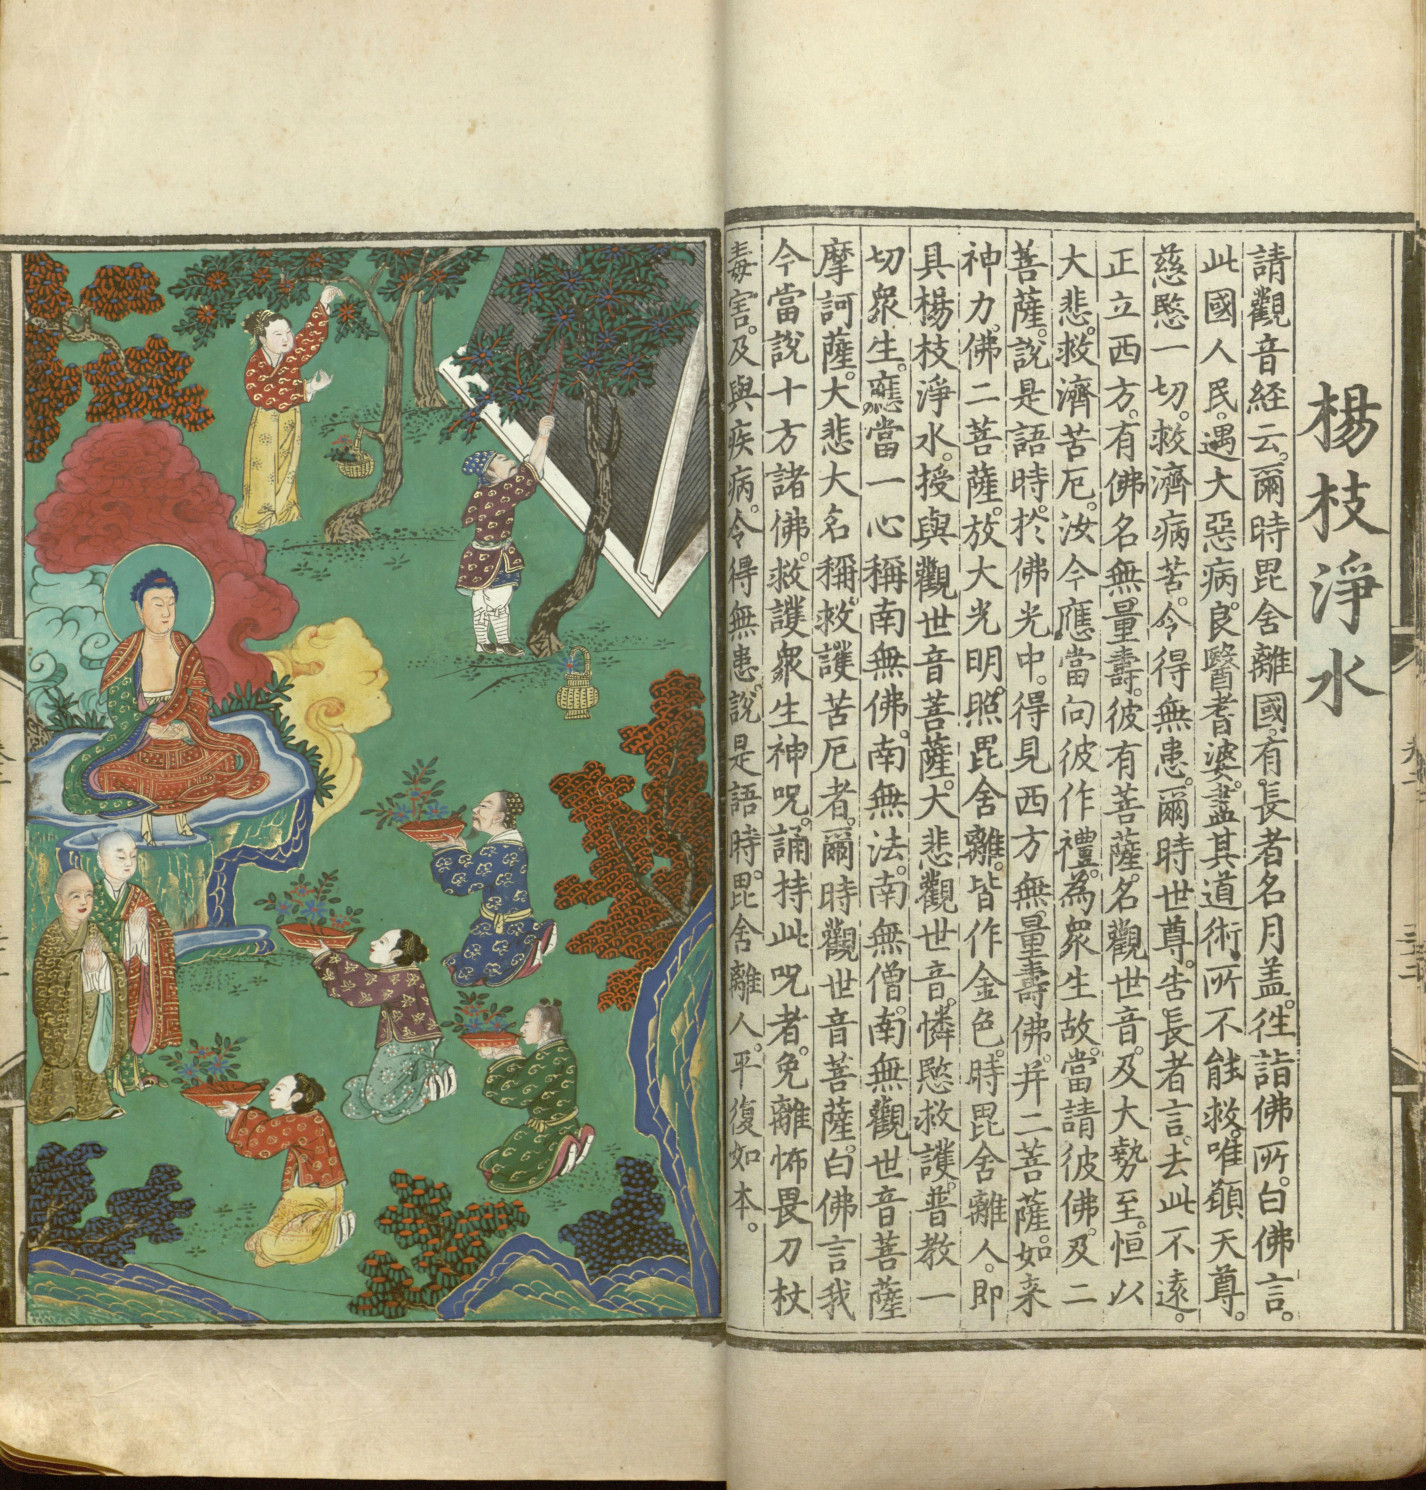 楊枝淨水
請觀音経云。爾時毘舍離國。有長者名月盖。徃詣佛所。白佛言。
此國人民。遇大惡病。良醫耆婆。盡其道術。所不能救。唯願天尊。
慈愍一切。救濟病苦。令得無患。爾時世尊。告長者言。去此不遠。
正立西方。有佛名無量壽。彼有菩薩。名觀世音。及大勢至。恒以
大悲。救濟苦厄。汝今應當向彼作禮。為眾生故。當請彼佛。及二
菩薩。說是語時。於佛光中。得見西方無量壽佛。并二菩薩。如來
神力。佛二菩薩。放大光明。照毘舍離。皆作金色。時毘舍離人。即
具楊枝淨水。授與觀世音菩薩。大悲觀世音。憐愍救護。普教一
切眾生。應當一心稱南無佛。南無法。南無僧。南無觀世音菩薩
摩訶薩。大悲大名稱。救護苦厄者。爾時觀世音菩薩。白佛言我
今當說十方諸佛。救護眾生神呪。誦持此呪者。免離怖畏刀杖
毒害。及與疾病。令得無患。說是語時。毘舍離人。平復如本。